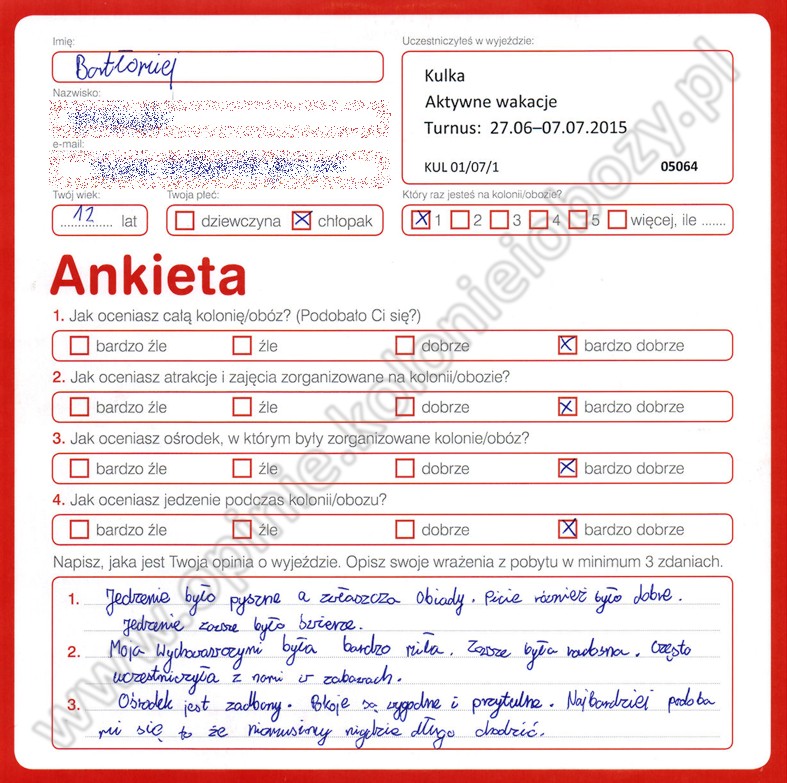 Imię:
Bartłomiej
Nazwisko:
e-mail:
Twój wiek:
12 lat
Twoja płeć:
dziewczyna chłopak
Uczestniczyłeś w wyjeździe:
Kulka
Aktywne wakacje
Turnus: 27.06–07.07.2015
KUL 01/07/1 05064
Który raz jesteś na kolonii/obozie?
1 2 3 4 5 więcej, ile .......
Ankieta
1. Jak oceniasz całą kolonię/obóz? (Podobało Ci się?)
bardzo źle źle dobrze bardzo dobrze
2. Jak oceniasz atrakcje i zajęcia zorganizowane na kolonii/obozie?
bardzo źle źle dobrze bardzo dobrze
3. Jak oceniasz ośrodek, w którym były zorganizowane kolonie/obóz?
bardzo źle źle dobrze bardzo dobrze
4. Jak oceniasz jedzenie podczas kolonii/obozu?
bardzo źle źle dobrze bardzo dobrze
Napisz, jaka jest Twoja opinia o wyjeździe. Opisz swoje wrażenia z pobytu w minimum 3 zdaniach.
1. Jedzenie było pyszne a zwłaszcza Obiady. Picie również było dobre.
Jedzenie zawsze było świerze.
2. Moja Wychowawczyni była bardzo miła. Zawsze była radosna. Często
uczestniczyła z nami w zabawach.
3. Ośrodek jest zadbany. Pokoje są wygodne i przytulne. Najbardziej podoba
mi się to że niemusimy nigdzie długo chodzić.
www.opinie.kolonieiobozy.pl